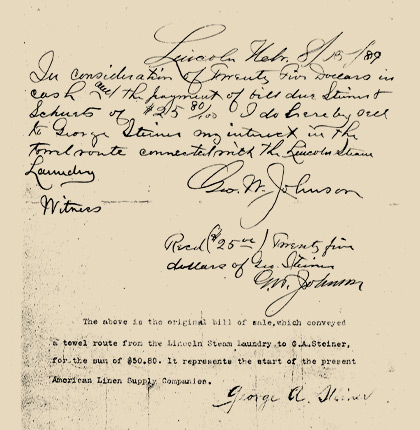 Lincoln Nebr. 8/15/89
In consideration of Twenty Five Dollars in
cash and the payment of bill due Steiner &
Schurts of $25 80/100 I do hereby sell
to George Steiner my interest in the
towel route connected with the Lincoln Steam
Laundry
Geo. W. Johnson
Witness
Recd ($25 00) Twenty five
dollars of Geo. Steiner
G.W. Johnson
The above is the original bill of sale,which conveyed
a towel route from the Lincoln Steam laundry to G.A.Steiner,
for the sum of $50.80. It represents the start of the present
American Linen Supply Companies.
George A. Steiner